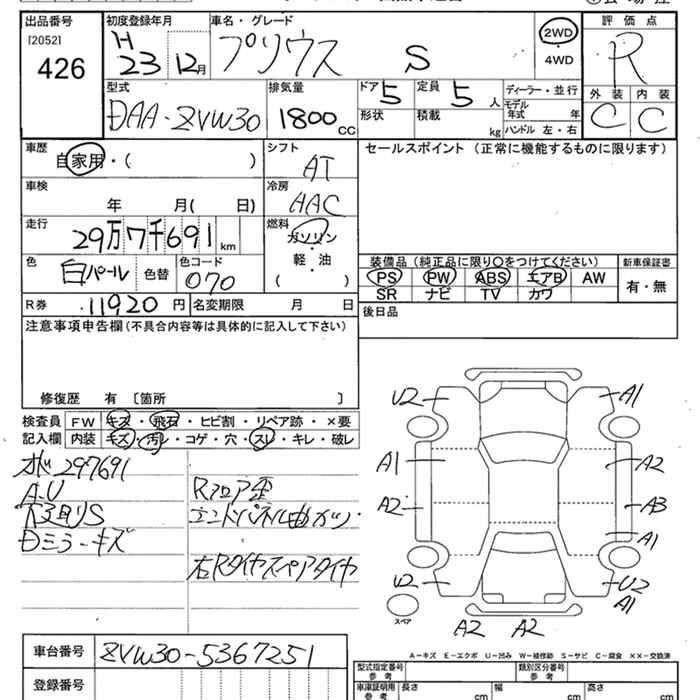 出品番号 初度登録年月 車名・グレード 評価点
[2052] H プリウス S 2WD R
426 23 12月 4WD
型式 排気量 ドア 定員 ディーラー・並行 外装 内装
DAA-ZVW30 1800cc 5 5人 モデル年式 年 C C
形状 積載 kg ハンドル 左・右
車歴 シフト セールスポイント (正常に機能するものに限ります)
自家用・( ) AT
車検 冷房
年 月( 日) AAC
走行 燃料
29万7千691km ガソリン
軽・油
( )
装備品 (純正品に限り○をつけてください) 新車保証書
色 色コード PS PW ABS エアB AW 有・無
白パール 色替 070 SR ナビ TV カワ
R券 11920円 名変期限 月 日 後日品
注意事項申告欄 (不具合内容等は具体的に記入して下さい)
修復歴 有 〔箇所 〕
検査員 FW キズ・飛石・ヒビ割・リペア跡・×要
記入欄 内装 キズ・汚レ・コゲ・穴・スレ・キレ・破レ
297691
A.U Rフロア歪
下廻りS エンドパネル曲ガリ
Dミラーキズ
右Rタイヤスペアタイヤ
U2 A1
A1 A2
A2 A3
A1
U2 U2
A1
スペア
A2 A2
A-キズ E-エクボ U-凹み W-補修跡 S-サビ C-腐食 XX-交換済
車台番号 ZVW30-5367251 型式指定番号 参考 類別区分番号 参考
登録番号 車庫証明用 参考 長さ cm 幅 cm 高さ cm